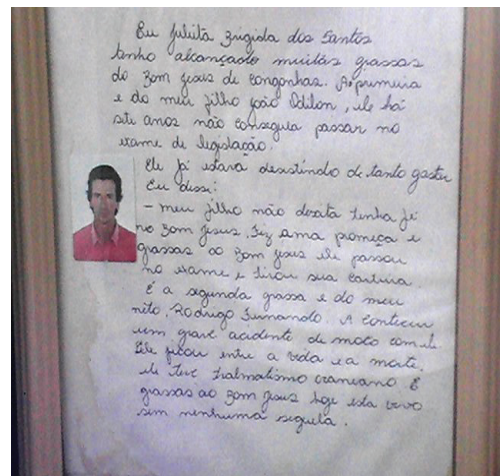 Eu Julita Brigida dos Santos
tenho alcançado muitas grassas
do Bom Jesus de congonhas. A primeira
e do meu filho joão Odilon, ele há
sete anos não consegua passar no
exame de legislação.
Ele já estava desistindo de tanto gastar
Eu disse:
- meu filho não desista tenha fé
no Bom Jesus. Fez uma promeça e
grassas ao Bom Jesus ele passou
no exame e tirou sua carteira.
E a segunda grassa e do meu
nito, Rodrigo Fernando. A conteceu
um grave acidente de moto com ele
Ele ficou entre a vida e a morte.
ele teve tralmatismo craneano. E
grassas ao Bom Jesus hoje esta vivo
sem nenhuma sequela.